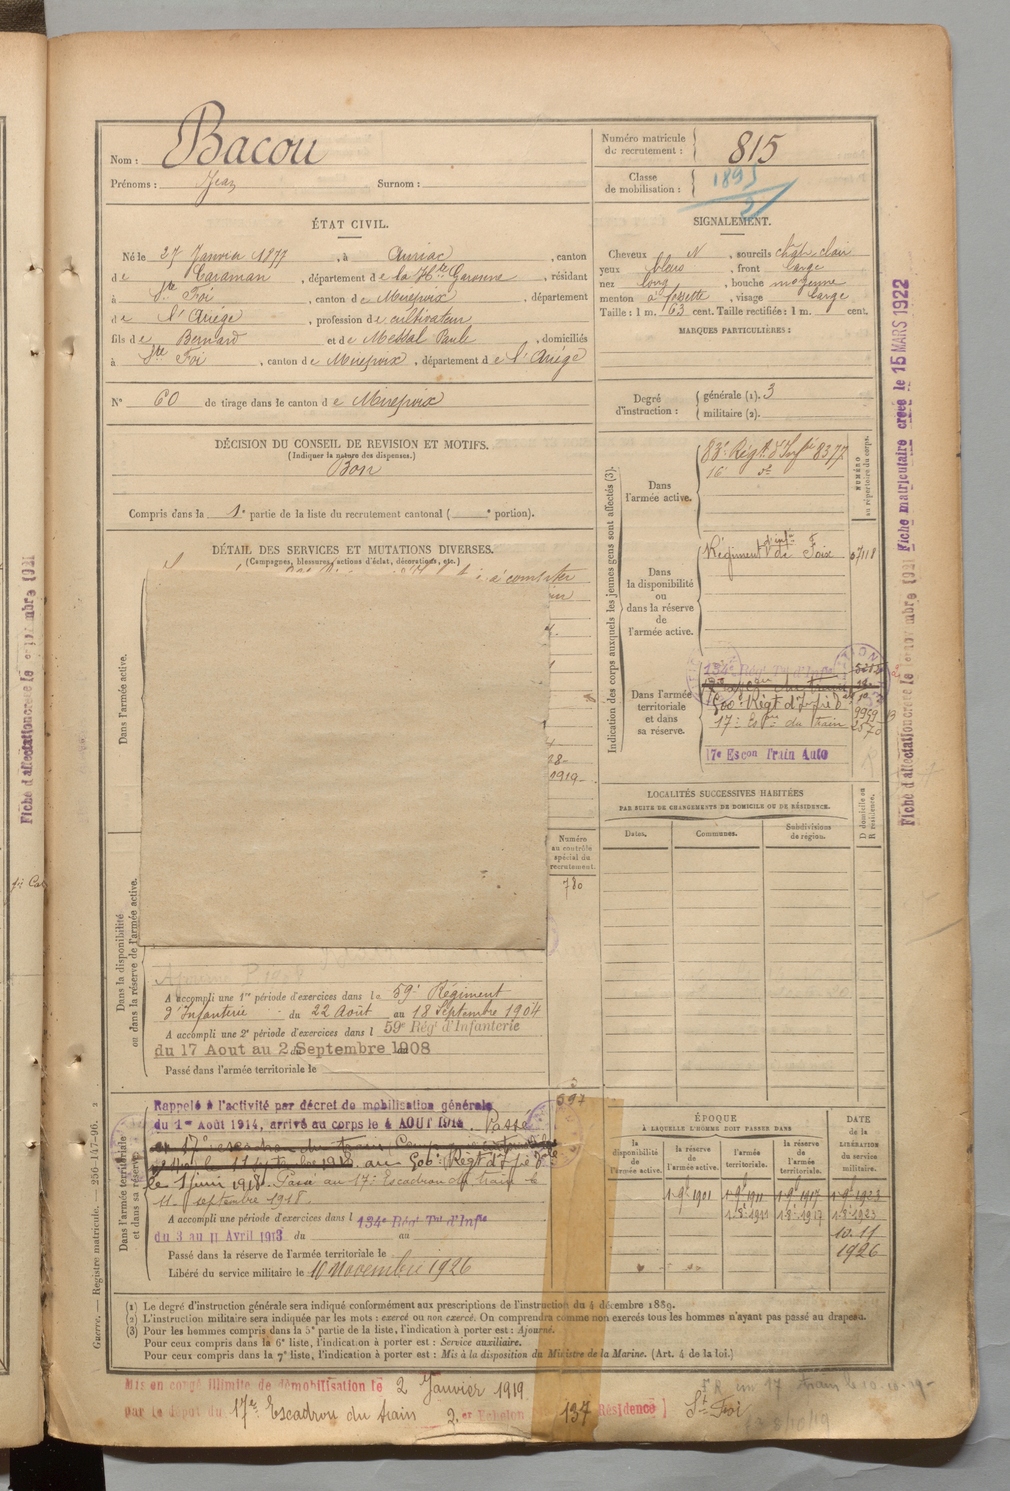 Nom : Bacou
Prénoms : Jean Surnom :
Numéro matricule
de recrutement : 815
Classe
de mobilisation : 1895
ÉTAT CIVIL.
Né le 27 Janvier 1877, à Auriac, canton
de Caraman, département de la Hte Garonne, résidant
à Ste Foi, canton de Mirepoix, département
de l'Ariège, profession de cultivateur
fils de Bernard et de Messal Paule, domiciliés
à Ste Foi, canton de Mirepoix, département de l'Ariège
N° 60 de tirage dans le canton de Mirepoix
SIGNALEMENT.
Cheveux N, sourcils chat clair
yeux bleus, front large
nez long, bouche moyenne
menton à fossette, visage large
Taille : 1 m. 63 cent. Taille rectifiée : 1 m. cent.
MARQUES PARTICULIÈRES :
Degré
d'instruction :
générale (1). 3
militaire (2).
DÉCISION DU CONSEIL DE REVISION ET MOTIFS.
(Indiquer la nature des dispenses.)
Bon
Compris dans la 1e partie de la liste du recrutement cantonal ( e portion).
DÉTAIL DES SERVICES ET MUTATIONS DIVERSES.
(Campagnes, blessures, actions d'éclat, décorations, etc.)
à compter
1919
Dans l'armée active.
Dans la disponibilité
ou dans la réserve de l'armée active.
Numéro
au contrôle
spécial du
recrutement.
780
A accompli une 1re période d'exercices dans le 59e Régiment
d'Infanterie du 22 Août au 18 Septembre 1904
A accompli une 2e période d'exercices dans l 59e Régt d'Infanterie
du 17 Aout au 2 Septembre 1908
Passé dans l'armée territoriale le
Dans l'armée territoriale
et dans sa réserve
597
Rappelé à l'activité par décret de mobilisation générale
du 1er Août 1914, arrivé au corps le 4 AOUT 1914. Passé
au 17e escadron du train
au 506e Régt d'
le 1 juin 1918. Passé au 17e Escadron du train le
11 septembre 1918.
A accompli une période d'exercices dans l 134e Régt Tal d'Infie
du 3 au 11 Avril 1913 du au
Passé dans la réserve de l'armée territoriale le
Libéré du service militaire le 10 Novembre 1926
Indication des corps auxquels les jeunes gens sont affectés (3).
NUMÉRO
au répertoire du corps.
Dans
l'armée active.
83e Régt d'Infie 8377
16e do
Dans
la disponibilité
ou
dans la réserve
de
l'armée active.
Régiment d'infie de Foix 07118
Dans l'armée
territoriale
et dans
sa réserve.
134e Régt Tal d'Infie
du train
17e Esc du train 2570
17e Escon Train Auto
LOCALITÉS SUCCESSIVES HABITÉES
PAR SUITE DE CHANGEMENTS DE DOMICILE OU DE RÉSIDENCE.
Dates. Communes. Subdivisions
de région.
D domicile ou
R résidence.
ÉPOQUE
À LAQUELLE L'HOMME DOIT PASSER DANS
la
disponibilité
de
l'armée active.
la réserve
de
l'armée active.
l'armée
territoriale.
la réserve
de
l'armée
territoriale.
DATE
de la
LIBÉRATION
du service
militaire.
1-9b 1901 1-9b 1911 1-9b 1917 1-9b 1923
1-8b 1911 1-8b 1917 1-8b 1923
10.11
1926
(1) Le degré d'instruction générale sera indiqué conformément aux prescriptions de l'instruction du 4 décembre 1889.
(2) L'instruction militaire sera indiquée par les mots : exercé ou non exercé. On comprendra comme non exercés tous les hommes n'ayant pas passé au drapeau.
(3) Pour les hommes compris dans la 5e partie de la liste, l'indication à porter est : Ajourné.
Pour ceux compris dans la 6e liste, l'indication à porter est : Service auxiliaire.
Pour ceux compris dans la 7e liste, l'indication à porter est : Mis à la disposition du Ministre de la Marine. (Art. 4 de la loi.)
Mis en congé illimité de démobilisation le 2 Janvier 1919
par le dépôt du 17e Escadron du train 2e Echelon 137 Résidence] Ste Foi
Guerre. — Registre matricule. — 256-147-96.
Fiche matriculaire créée le 15 MARS 1922
Fiche d'affectation créée le novembre 1921
Fiche d'affectation créée le novembre 1921